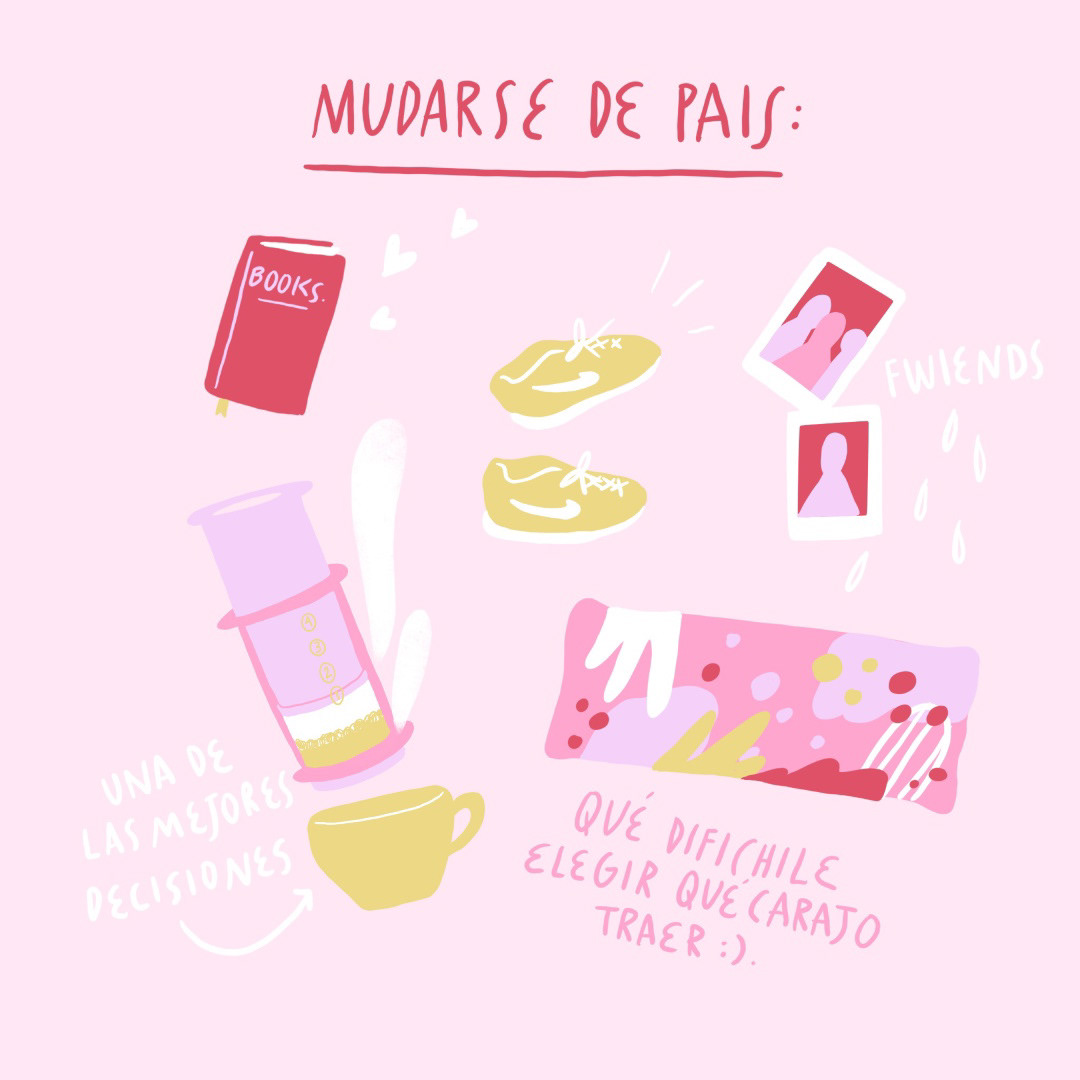 MUDARSE DE PAIS:
BOOKS.
FWIENDS
4
3
2
1
UNA DE
LAS MEJORES
DECISIONES
QUÉ DIFICHILE
ELEGIR QUÉ CARAJO
TRAER :).